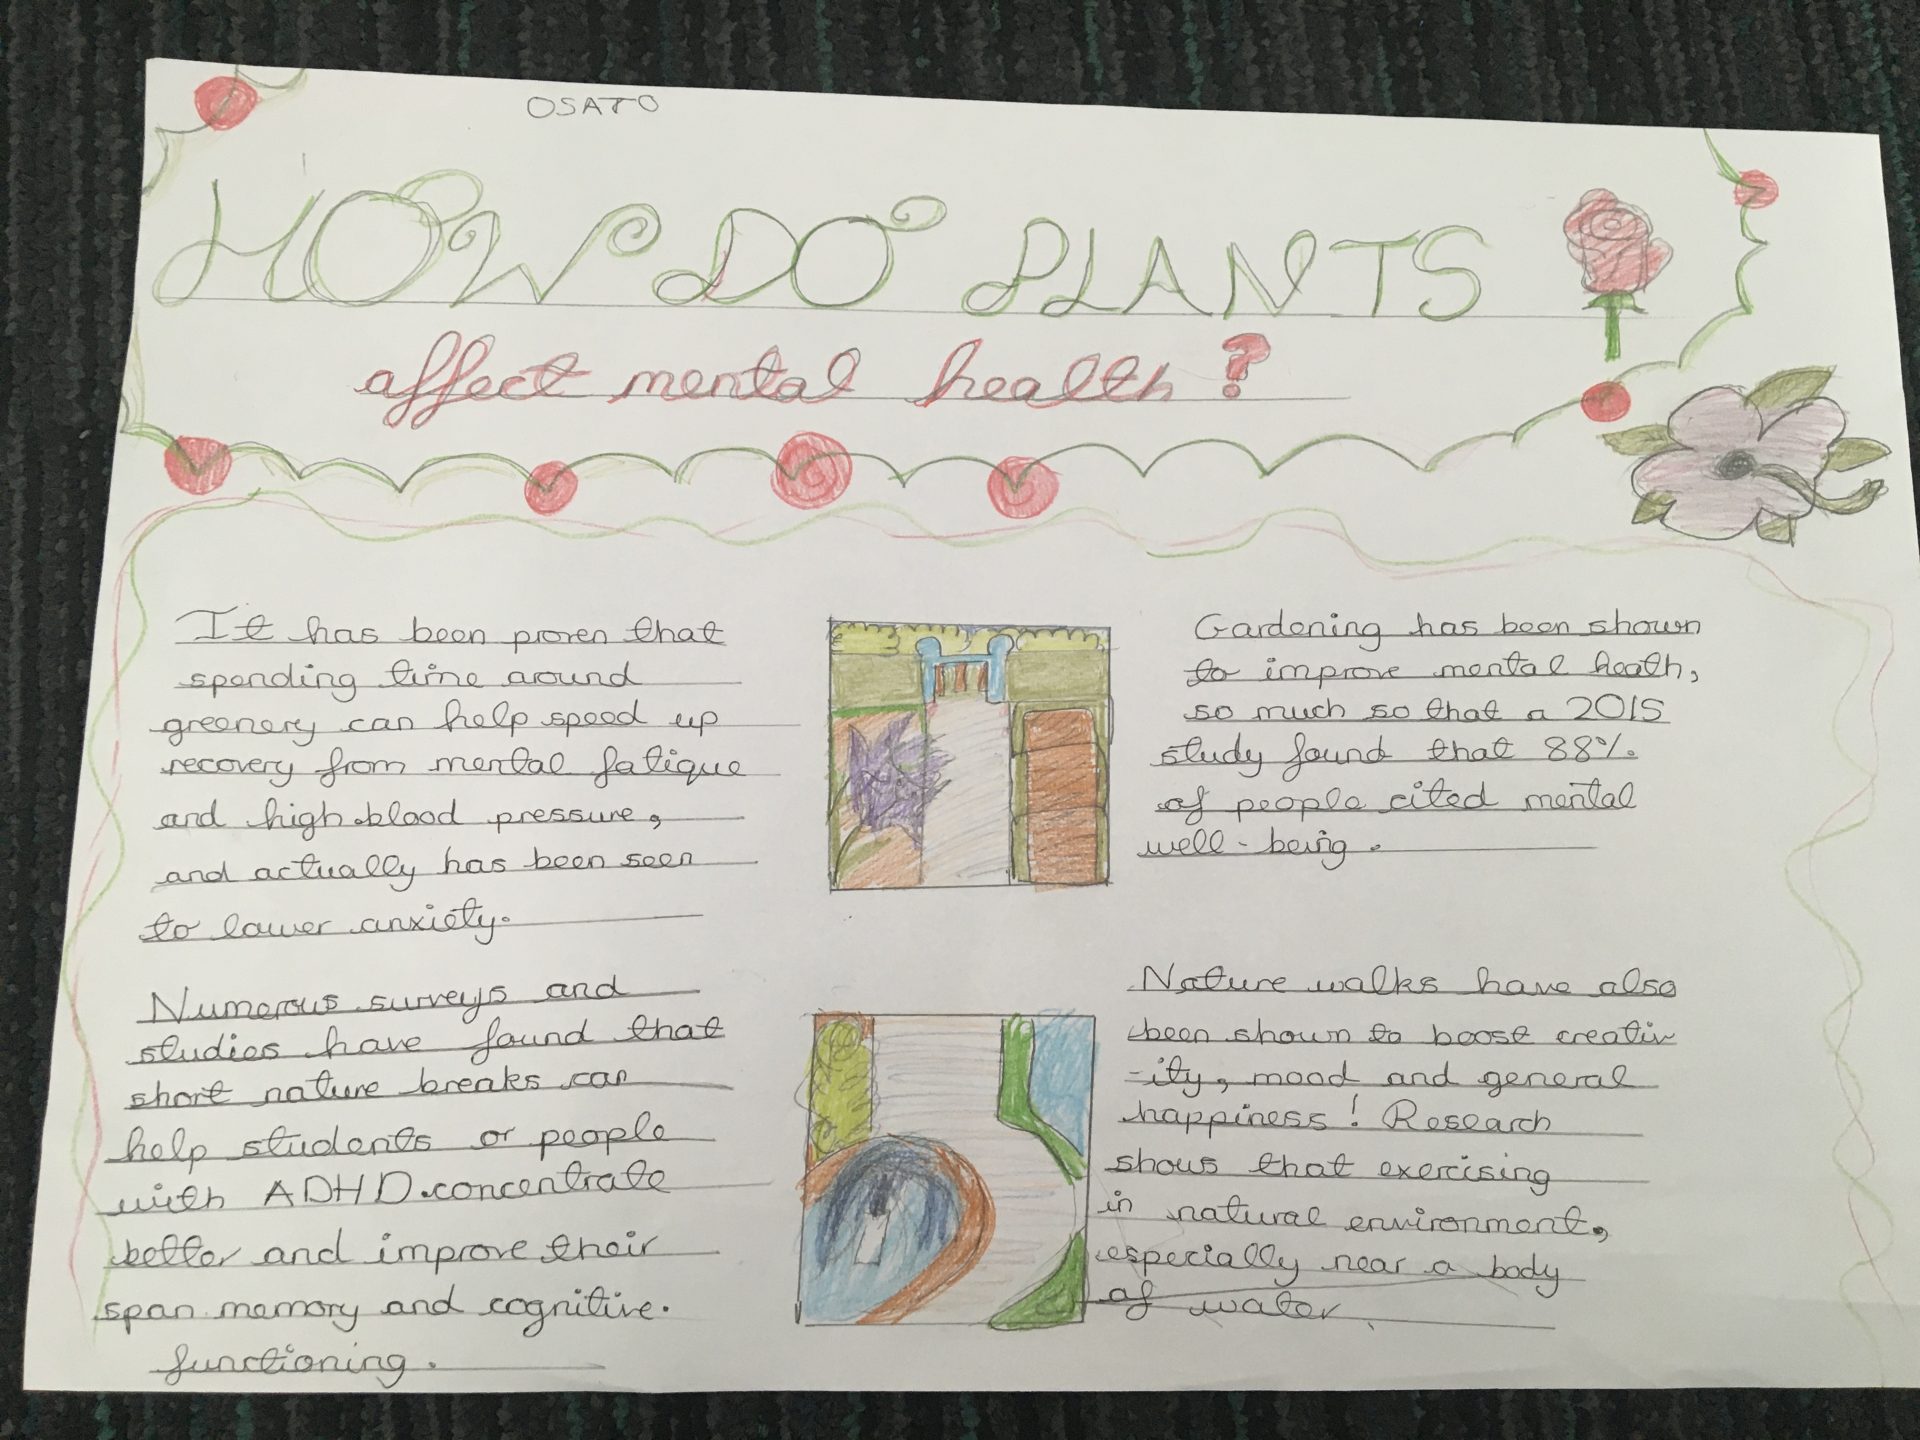 OSATO
HOW DO PLANTS
affect mental health?
It has been proven that
spending time around
greenery can help speed up
recovery from mental fatique
and high blood pressure,
and actually has been seen
to lower anxiety.
Numerous surveys and
studies have found that
short nature breaks can
help students or people
with ADHD concentrate
better and improve their
span memory and cognitive.
functioning.
Gardening has been shown
to improve mental heath,
so much so that a 2015
study found that 88%
of people cited mental
well-being.
Nature walks have also
been shown to boost creativ
-ity, mood and general
happiness! Research
shows that exercising
in natural environment,
especially near a body
of water.